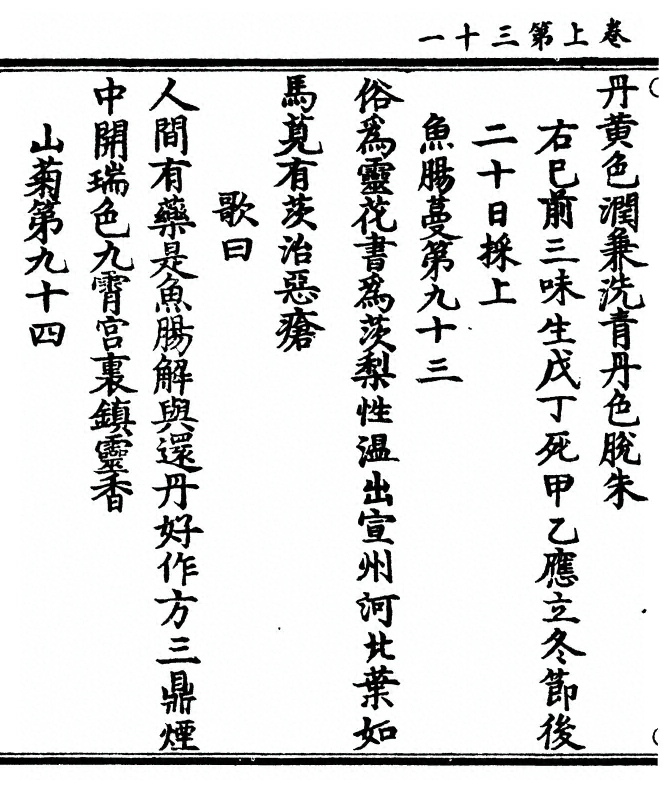 卷上第三十一
丹黄色潤兼洗青丹色脫朱
右已前三味生戊丁死甲乙應立冬節後
二十日採上
魚腸蔓第九十三
俗爲靈花書爲茨梨性溫出宣州河北葉如
馬莧有茨治惡瘡
歌曰
人間有藥是魚腸解與還丹好作方三鼎煙
中開瑞色九霄宮裏鎮靈香
山菊第九十四